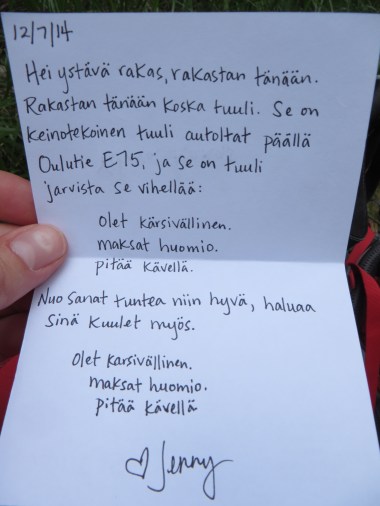 12/7/14
Hei ystävä rakas, rakastan tänään.
Rakastan tänään koska tuuli. Se on
keinotekoinen tuuli autoltat päällä
Oulutie E75, ja se on tuuli
jarvista se vihellää:
Olet kärsivällinen.
maksat huomio.
pitää kävellä.
Nuo sanat tuntea niin hyvä, haluaa
sinä kuulet myös.
Olet karsivällinen.
maksat huomio.
pitää kävellä
♡ Jenny